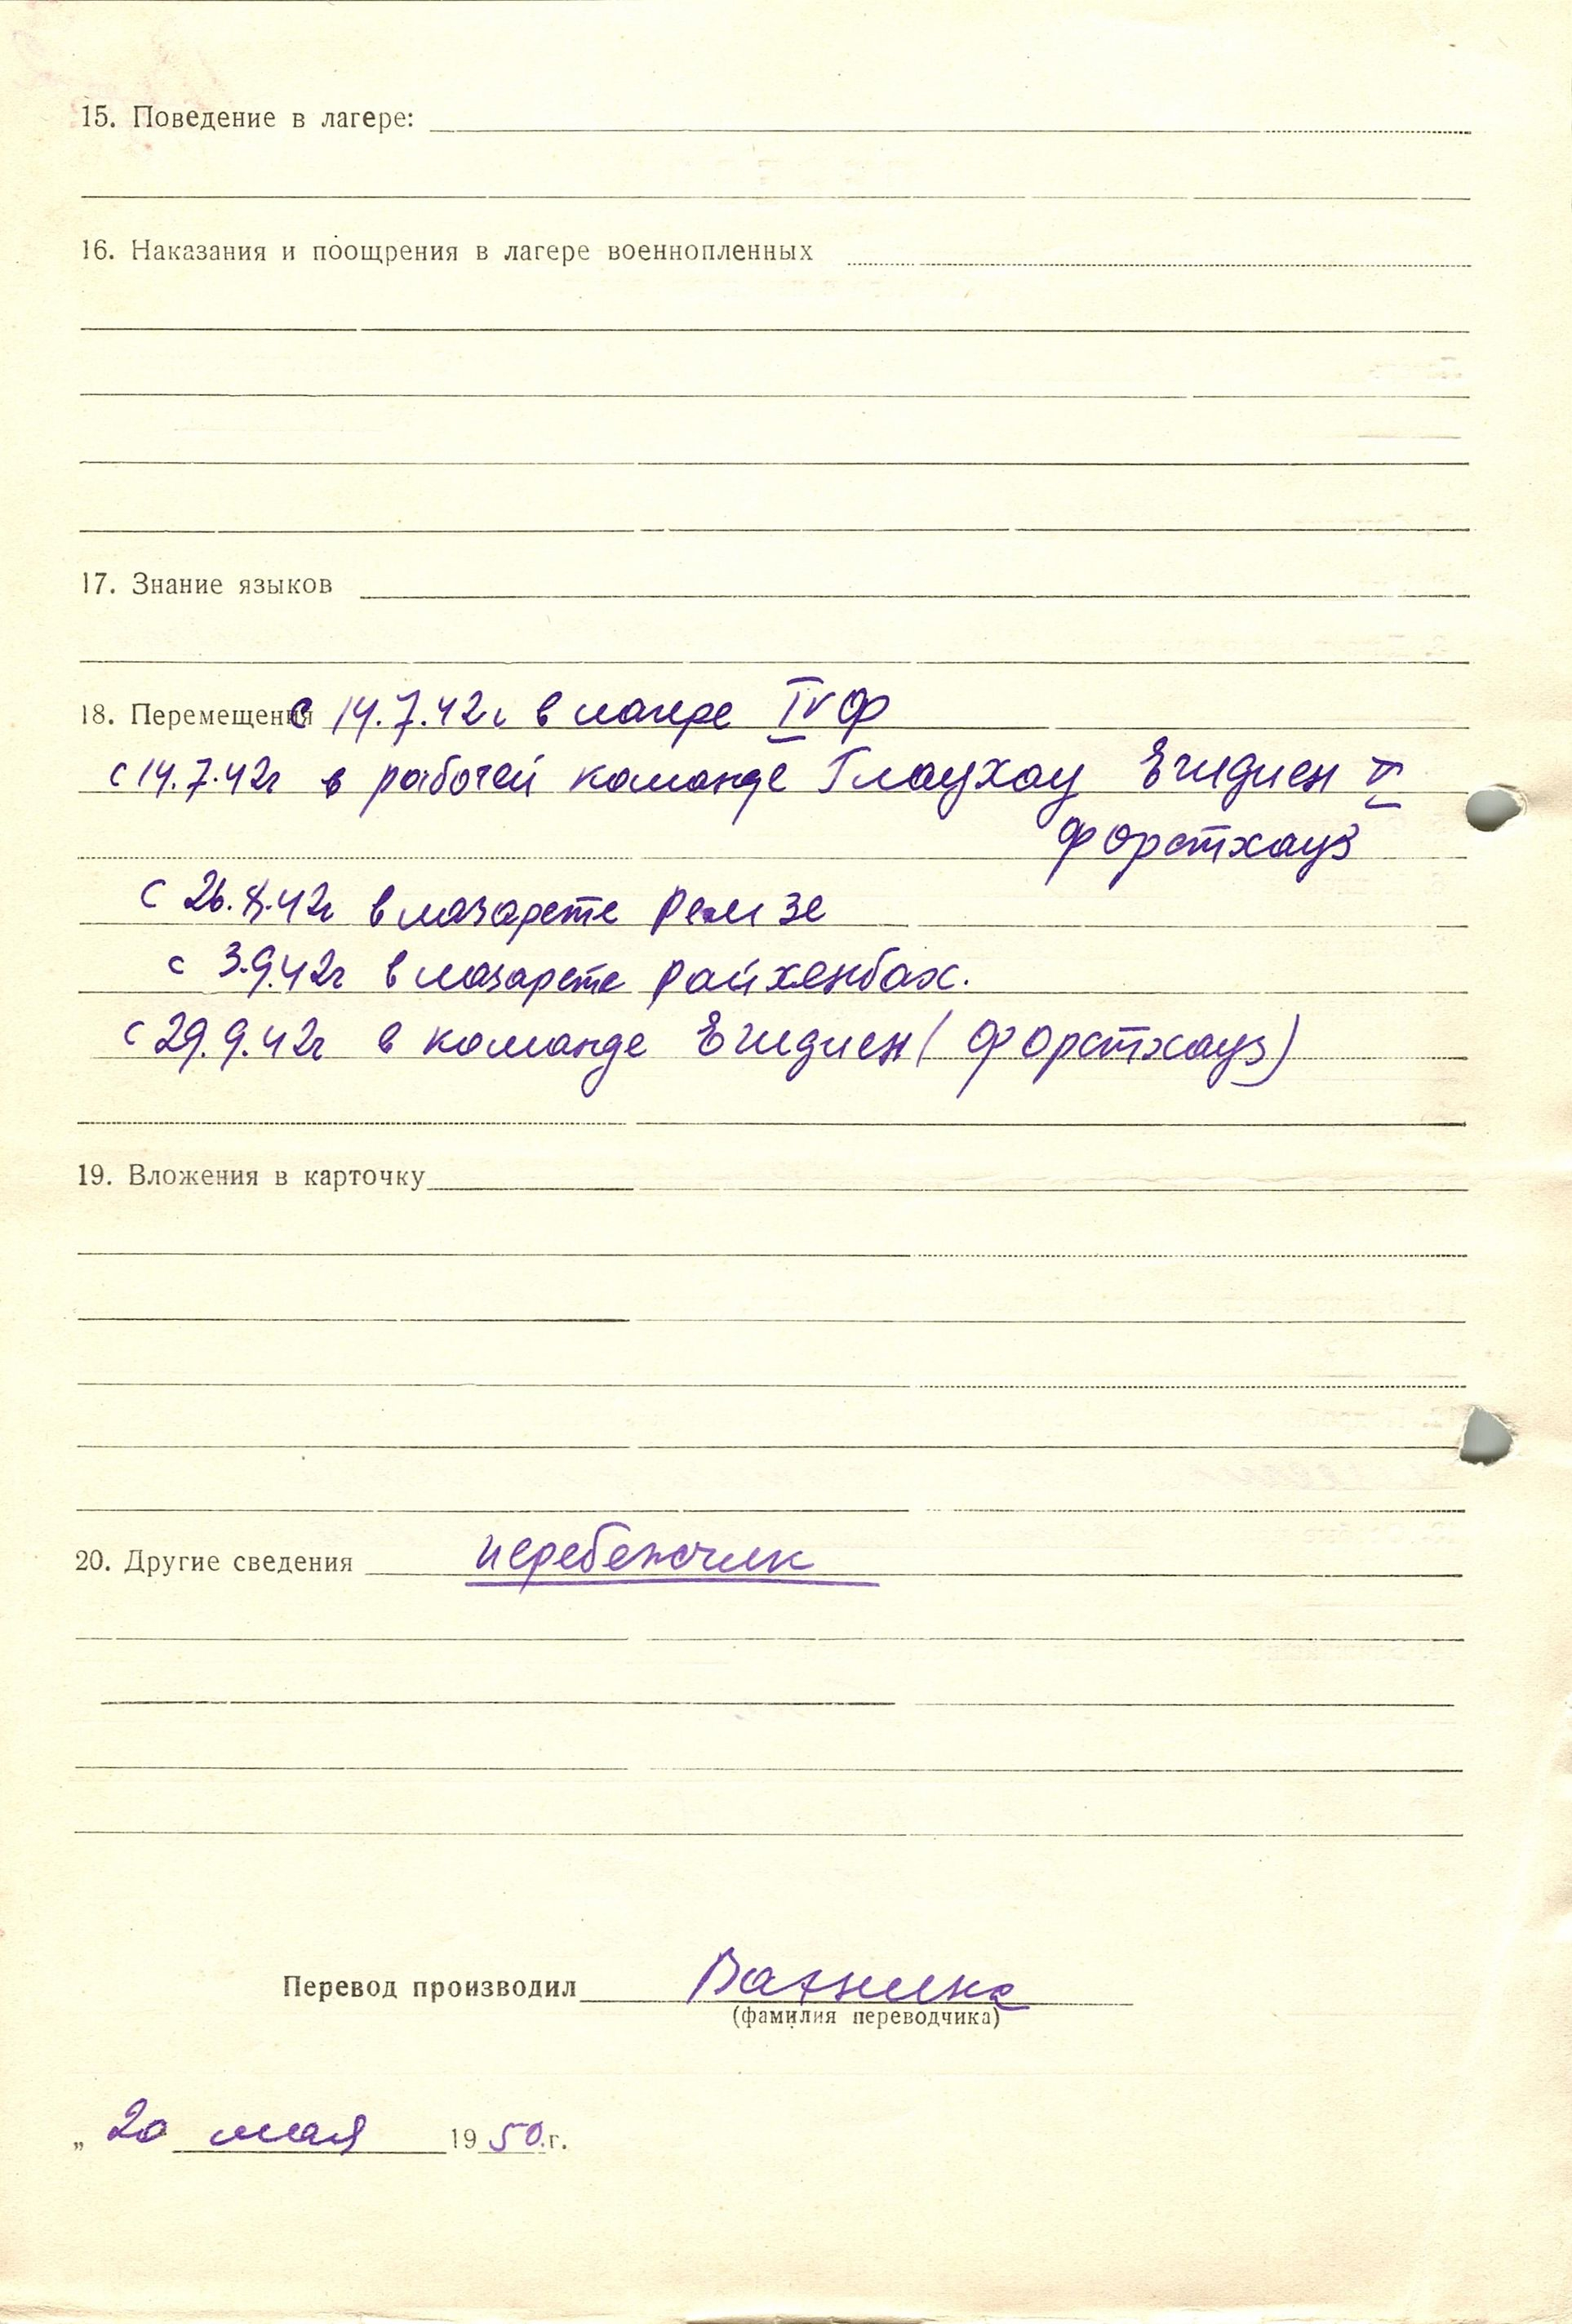 15. Поведение в лагере:
16. Наказания и поощрения в лагере военнопленных
17. Знание языков
18. Перемещения с 14.7.42г в лагере IVФ
с 14.7.42г в рабочей команде Глаухау Егидиен II
Форстхауз
С 26.8.42г в лазарете Ремзе
с 3.9.42г в лазарете Райхенбах.
с 29.9.42г в команде Егидиен (Форстхауз)
19. Вложения в карточку
20. Другие сведения перебежчик
Перевод производил
(фамилия переводчика)
„ 20 мая 1950.г.